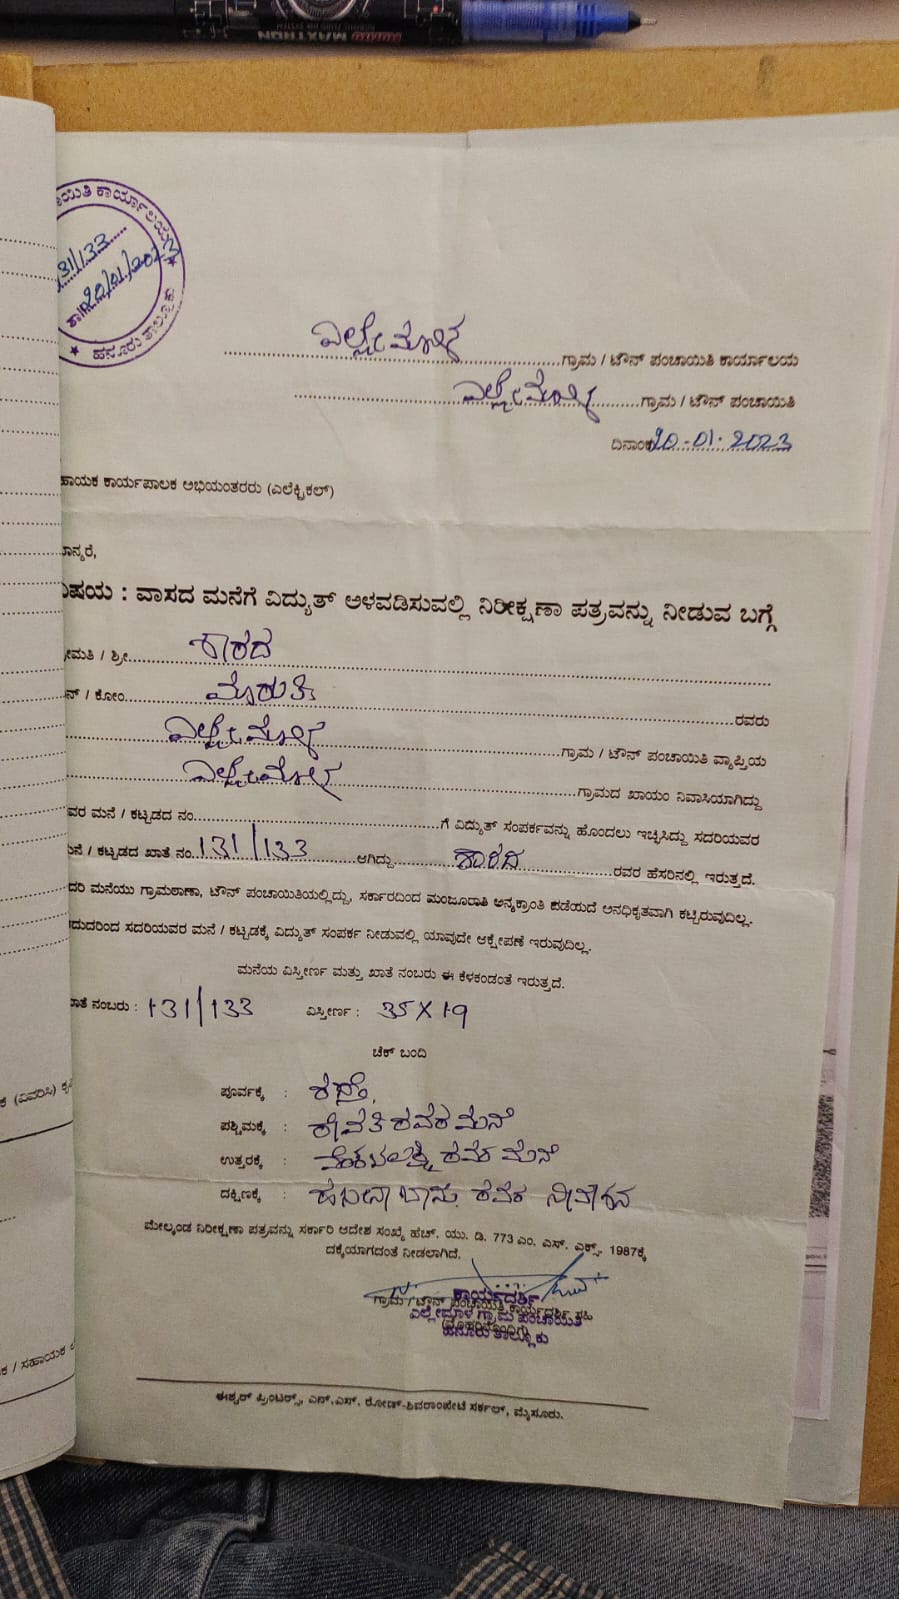 MAXTRON
ಾಯಿತಿ ಕಾರ್ಯಾಲಯ
131/133
20/01/202
ಹನೂರು ತಾಲ್ಲೂಕು
ಎಲ್ಲೇಮಾಳ ಗ್ರಾಮ / ಟೌನ್ ಪಂಚಾಯಿತಿ ಕಾರ್ಯಾಲಯ
ಎಲ್ಲೇಮಾಳ ಗ್ರಾಮ / ಟೌನ್ ಪಂಚಾಯಿತಿ
ದಿನಾಂಕ 20-01-2023
ಹಾಯಕ ಕಾರ್ಯಪಾಲಕ ಅಭಿಯಂತರರು (ಎಲೆಕ್ಟ್ರಿಕಲ್)
ಾನ್ಯರೆ,
ವಿಷಯ : ವಾಸದ ಮನೆಗೆ ವಿದ್ಯುತ್ ಅಳವಡಿಸುವಲ್ಲಿ ನಿರೀಕ್ಷಣಾ ಪತ್ರವನ್ನು ನೀಡುವ ಬಗ್ಗೆ
ೀಮತಿ / ಶ್ರೀ ಶಾರದ
ನ್ / ಕೋಂ ಮಾರುತಿ ರವರು
ಎಲ್ಲೇಮಾಳ ಗ್ರಾಮ / ಟೌನ್ ಪಂಚಾಯಿತಿ ವ್ಯಾಪ್ತಿಯ
ಎಲ್ಲೇಮಾಳ ಗ್ರಾಮದ ಖಾಯಂ ನಿವಾಸಿಯಾಗಿದ್ದು
ವರ ಮನೆ / ಕಟ್ಟಡದ ನಂ. ಗೆ ವಿದ್ಯುತ್ ಸಂಪರ್ಕವನ್ನು ಹೊಂದಲು ಇಚ್ಛಿಸಿದ್ದು ಸದರಿಯವರ
ನೆ / ಕಟ್ಟಡದ ಖಾತೆ ನಂ. 131/133 ಆಗಿದ್ದು ಶಾರದ ರವರ ಹೆಸರಿನಲ್ಲಿ ಇರುತ್ತದೆ.
ದರಿ ಮನೆಯು ಗ್ರಾಮಠಾಣಾ, ಟೌನ್ ಪಂಚಾಯಿತಿಯಲ್ಲಿದ್ದು, ಸರ್ಕಾರದಿಂದ ಮಂಜೂರಾತಿ ಅನ್ಯಕ್ರಾಂತಿ ಪಡೆಯದೆ ಅನಧಿಕೃತವಾಗಿ ಕಟ್ಟಿರುವುದಿಲ್ಲ.
ದುದರಿಂದ ಸದರಿಯವರ ಮನೆ / ಕಟ್ಟಡಕ್ಕೆ ವಿದ್ಯುತ್ ಸಂಪರ್ಕ ನೀಡುವಲ್ಲಿ ಯಾವುದೇ ಆಕ್ಷೇಪಣೆ ಇರುವುದಿಲ್ಲ.
ಮನೆಯ ವಿಸ್ತೀರ್ಣ ಮತ್ತು ಖಾತೆ ನಂಬರು ಈ ಕೆಳಕಂಡಂತೆ ಇರುತ್ತದೆ.
ಾತೆ ನಂಬರು : 131/133 ವಿಸ್ತೀರ್ಣ : 35 X 19
ಚೆಕ್ ಬಂದಿ
ಪೂರ್ವಕ್ಕೆ : ರಸ್ತೆ,
ಪಶ್ಚಿಮಕ್ಕೆ : ರೇವತಿ ರವರ ಮನೆ
ಉತ್ತರಕ್ಕೆ : ವರಲಕ್ಷ್ಮಿ ರವರ ಮನೆ
ದಕ್ಷಿಣಕ್ಕೆ : ಬಾನು ರವರ ನಿವೇಶನ
ಮೇಲ್ಕಂಡ ನಿರೀಕ್ಷಣಾ ಪತ್ರವನ್ನು ಸರ್ಕಾರಿ ಆದೇಶ ಸಂಖ್ಯೆ ಹೆಚ್. ಯು. ಡಿ. 773 ಎಂ. ಎಸ್. ಎಕ್ಸ್. 1987ಕ್ಕೆ
ದಕ್ಕೆಯಾಗದಂತೆ ನೀಡಲಾಗಿದೆ.
ಕಾರ್ಯದರ್ಶಿ
ಗ್ರಾಮ / ಟೌನ್ ಪಂಚಾಯಿತಿ ಕಾರ್ಯದರ್ಶಿ ಸಹಿ
ಎಲ್ಲೇಮಾಳ ಗ್ರಾಮ ಪಂಚಾಯಿತಿ
(ಮೊಹರಿನೊಂದಿಗೆ)
ಹನೂರು ತಾಲ್ಲೂಕು
ಈಶ್ವರ್ ಪ್ರಿಂಟರ್ಸ್, ಎನ್.ಎಸ್. ರೋಡ್-ಶಿವರಾಂಪೇಟೆ ಸರ್ಕಲ್, ಮೈಸೂರು.
ಕ (ವಿವರಿಸಿ)
ಕ / ಸಹಾಯಕ